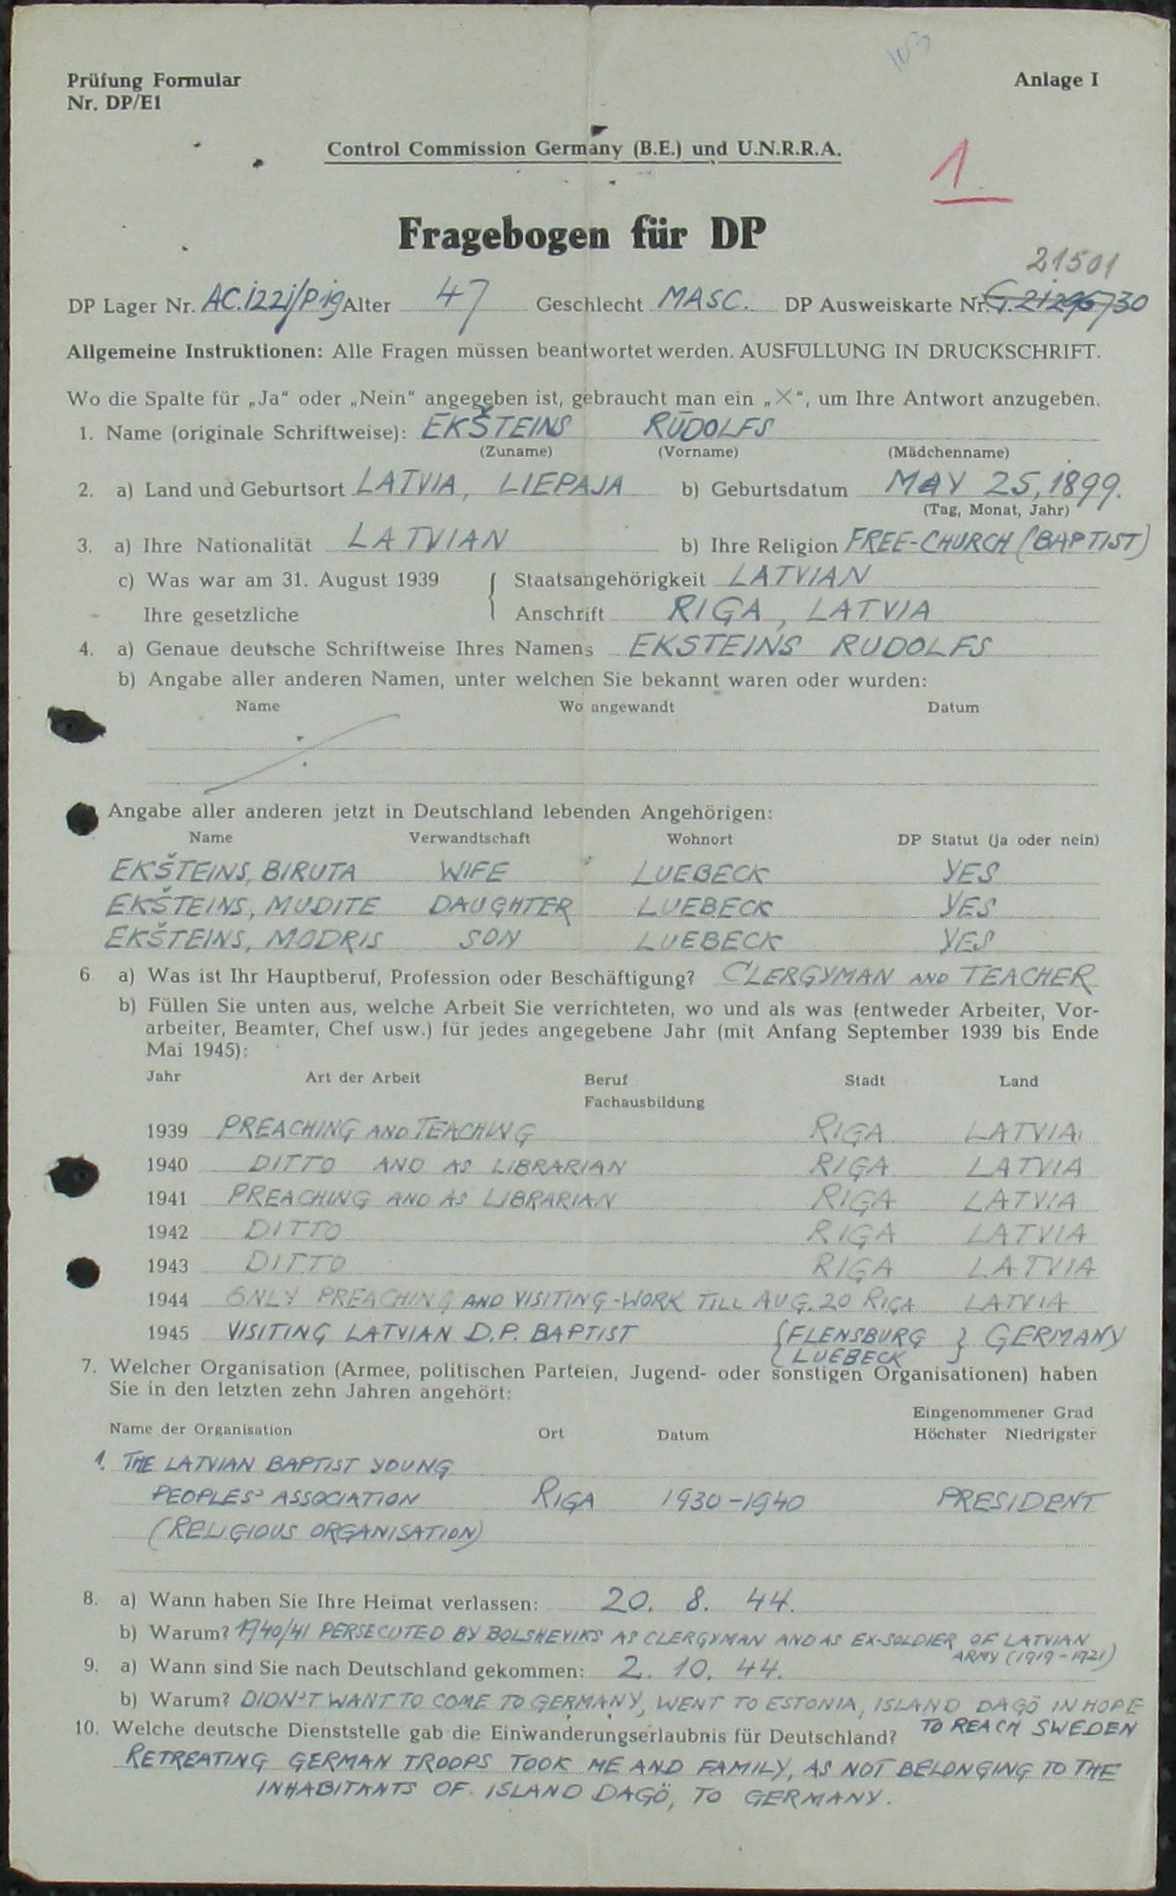 103
Prüfung Formular
Anlage I
Nr. DP/E1
Control Commission Germany (B.E.) und U.N.R.R.A.
1
Fragebogen für DP
21501
DP Lager Nr. Alter 47 Geschlecht MASC. DP Ausweiskarte Nr.
Allgemeine Instruktionen: Alle Fragen müssen beantwortet werden. AUSFÜLLUNG IN DRUCKSCHRIFT.
Wo die Spalte für „Ja“ oder „Nein“ angegeben ist, gebraucht man ein „X“, um Ihre Antwort anzugeben.
1. Name (originale Schriftweise): EKŠTEINS RŪDOLFS
(Zuname) (Vorname) (Mädchenname)
2. a) Land und Geburtsort LATVIA, LIEPAJA b) Geburtsdatum MAY 25, 1899.
(Tag, Monat, Jahr)
3. a) Ihre Nationalität LATVIAN b) Ihre Religion FREE-CHURCH (BAPTIST)
c) Was war am 31. August 1939 { Staatsangehörigkeit LATVIAN
Ihre gesetzliche Anschrift RIGA, LATVIA
4. a) Genaue deutsche Schriftweise Ihres Namens EKSTEINS RUDOLFS
b) Angabe aller anderen Namen, unter welchen Sie bekannt waren oder wurden:
Name Wo angewandt Datum
Angabe aller anderen jetzt in Deutschland lebenden Angehörigen:
Name Verwandtschaft Wohnort DP Statut (ja oder nein)
EKŠTEINS, BIRUTA WIFE LUEBECK YES
EKŠTEINS, MUDITE DAUGHTER LUEBECK YES
EKŠTEINS, MODRIS SON LUEBECK YES
6. a) Was ist Ihr Hauptberuf, Profession oder Beschäftigung? CLERGYMAN AND TEACHER
b) Füllen Sie unten aus, welche Arbeit Sie verrichteten, wo und als was (entweder Arbeiter, Vor-
arbeiter, Beamter, Chef usw.) für jedes angegebene Jahr (mit Anfang September 1939 bis Ende
Mai 1945):
Jahr Art der Arbeit Beruf Stadt Land
Fachausbildung
1939 PREACHING AND TEACHING RIGA LATVIA
1940 DITTO AND AS LIBRARIAN RIGA LATVIA
1941 PREACHING AND AS LIBRARIAN RIGA LATVIA
1942 DITTO RIGA LATVIA
1943 DITTO RIGA LATVIA
1944 ONLY PREACHING AND VISITING-WORK TILL AUG. 20 RIGA LATVIA
1945 VISITING LATVIAN D.P. BAPTIST { FLENSBURG } GERMANY
LUEBECK
7. Welcher Organisation (Armee, politischen Parteien, Jugend- oder sonstigen Organisationen) haben
Sie in den letzten zehn Jahren angehört:
Eingenommener Grad
Name der Organisation Ort Datum Höchster Niedrigster
1. THE LATVIAN BAPTIST YOUNG
PEOPLES' ASSOCIATION RIGA 1930-1940 PRESIDENT
(RELIGIOUS ORGANISATION)
8. a) Wann haben Sie Ihre Heimat verlassen: 20. 8. 44.
b) Warum? 1940/41 PERSECUTED BY BOLSHEVIKS AS CLERGYMAN AND AS EX-SOLDIER OF LATVIAN
ARMY (1919-1921)
9. a) Wann sind Sie nach Deutschland gekommen: 2. 10. 44.
b) Warum? DIDN'T WANT TO COME TO GERMANY, WENT TO ESTONIA, ISLAND DAGÖ IN HOPE
TO REACH SWEDEN
10. Welche deutsche Dienststelle gab die Einwanderungserlaubnis für Deutschland?
RETREATING GERMAN TROOPS TOOK ME AND FAMILY, AS NOT BELONGING TO THE
INHABITANTS OF ISLAND DAGÖ, TO GERMANY.